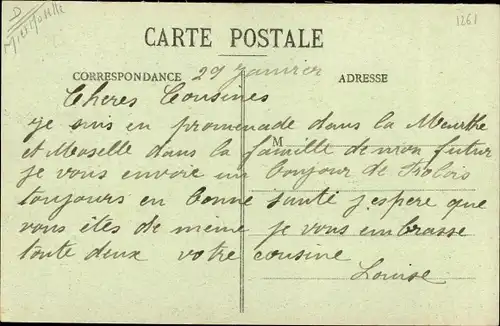 D
Mthe Moselle
1261
CARTE POSTALE
CORRESPONDANCE 29 Janvier ADRESSE
Cheres Cousines
Je suis en promenade dans la Meurthe
M
et Moselle dans la famille de mon futur
je vous envoie un bonjour de Frolois
toujours en bonne santé j'espere que
vous êtes de même je vous embrasse
toute deux votre cousine
Louise